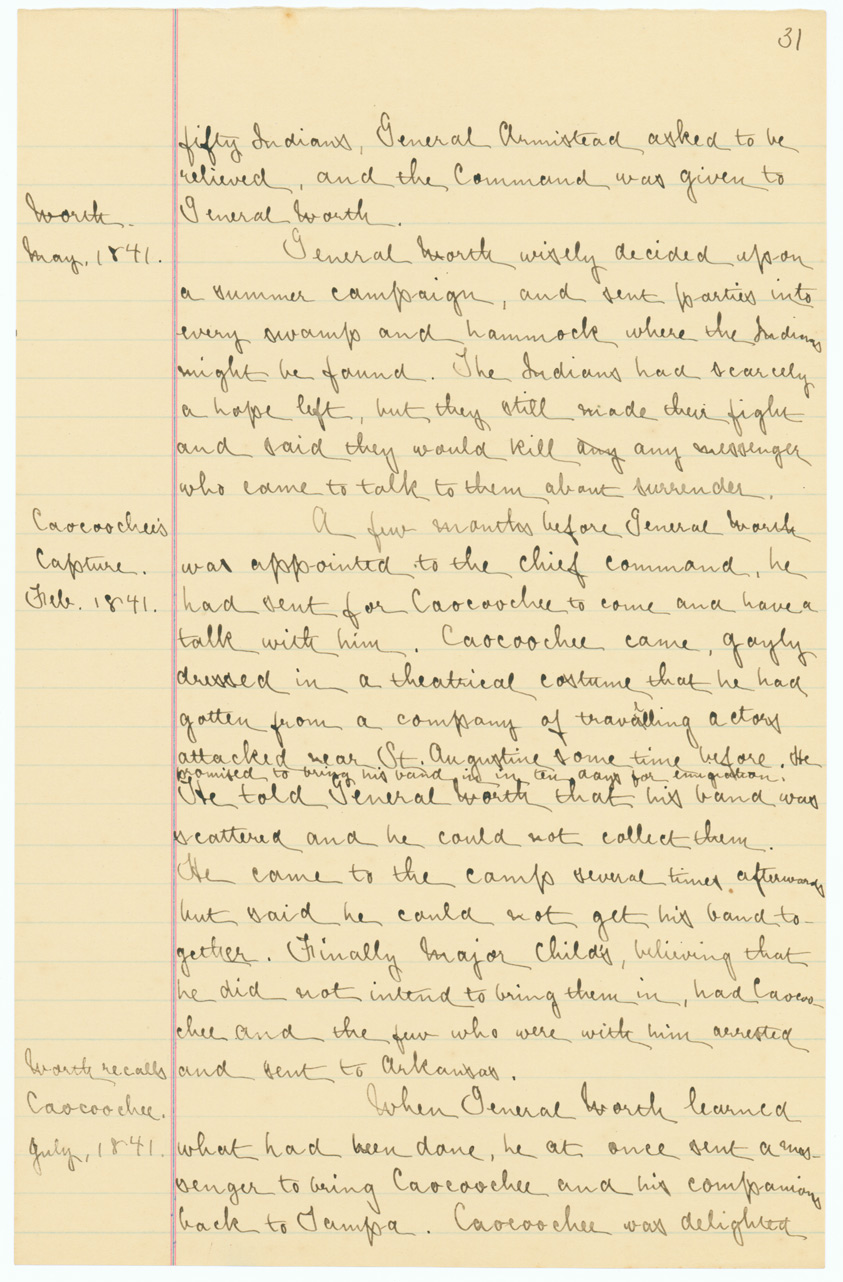 31
fifty Indians, General Armistead asked to be
relieved, and the Command was given to
Worth.
General Worth.
May, 1841.
General Worth wisely decided upon
a summer campaign, and sent parties into
every swamp and hammock where the Indians
might be found. The Indians had scarcely
a hope left, but they still made their fight
and said they would kill any any messenger
who came to talk to them about surrender.
Caocoochee's
Capture.
Feb. 1841.
A few months before General Worth
was appointed to the chief command, he
had sent for Caocoochee to come and have a
talk with him. Caocoochee came, gayly
dressed in a theatrical costume that he had
gotten from a company of travelling actors
attacked near St. Augustine some time before. He
promised to bring his band in in ten days for emigration.
He told General Worth that his band was
scattered and he could not collect them.
He came to the camp several times afterwards
but said he could not get his band to-
gether. Finally Major Childs, believing that
he did not intend to bring them in, had Caocoo-
chee and the few who were with him arrested
and sent to Arkansas.
Worth recalls
Caocoochee.
July, 1841.
When General Worth learned
what had been done, he at once sent a mes-
senger to bring Caocoochee and his companions
back to Tampa. Caocoochee was delighted